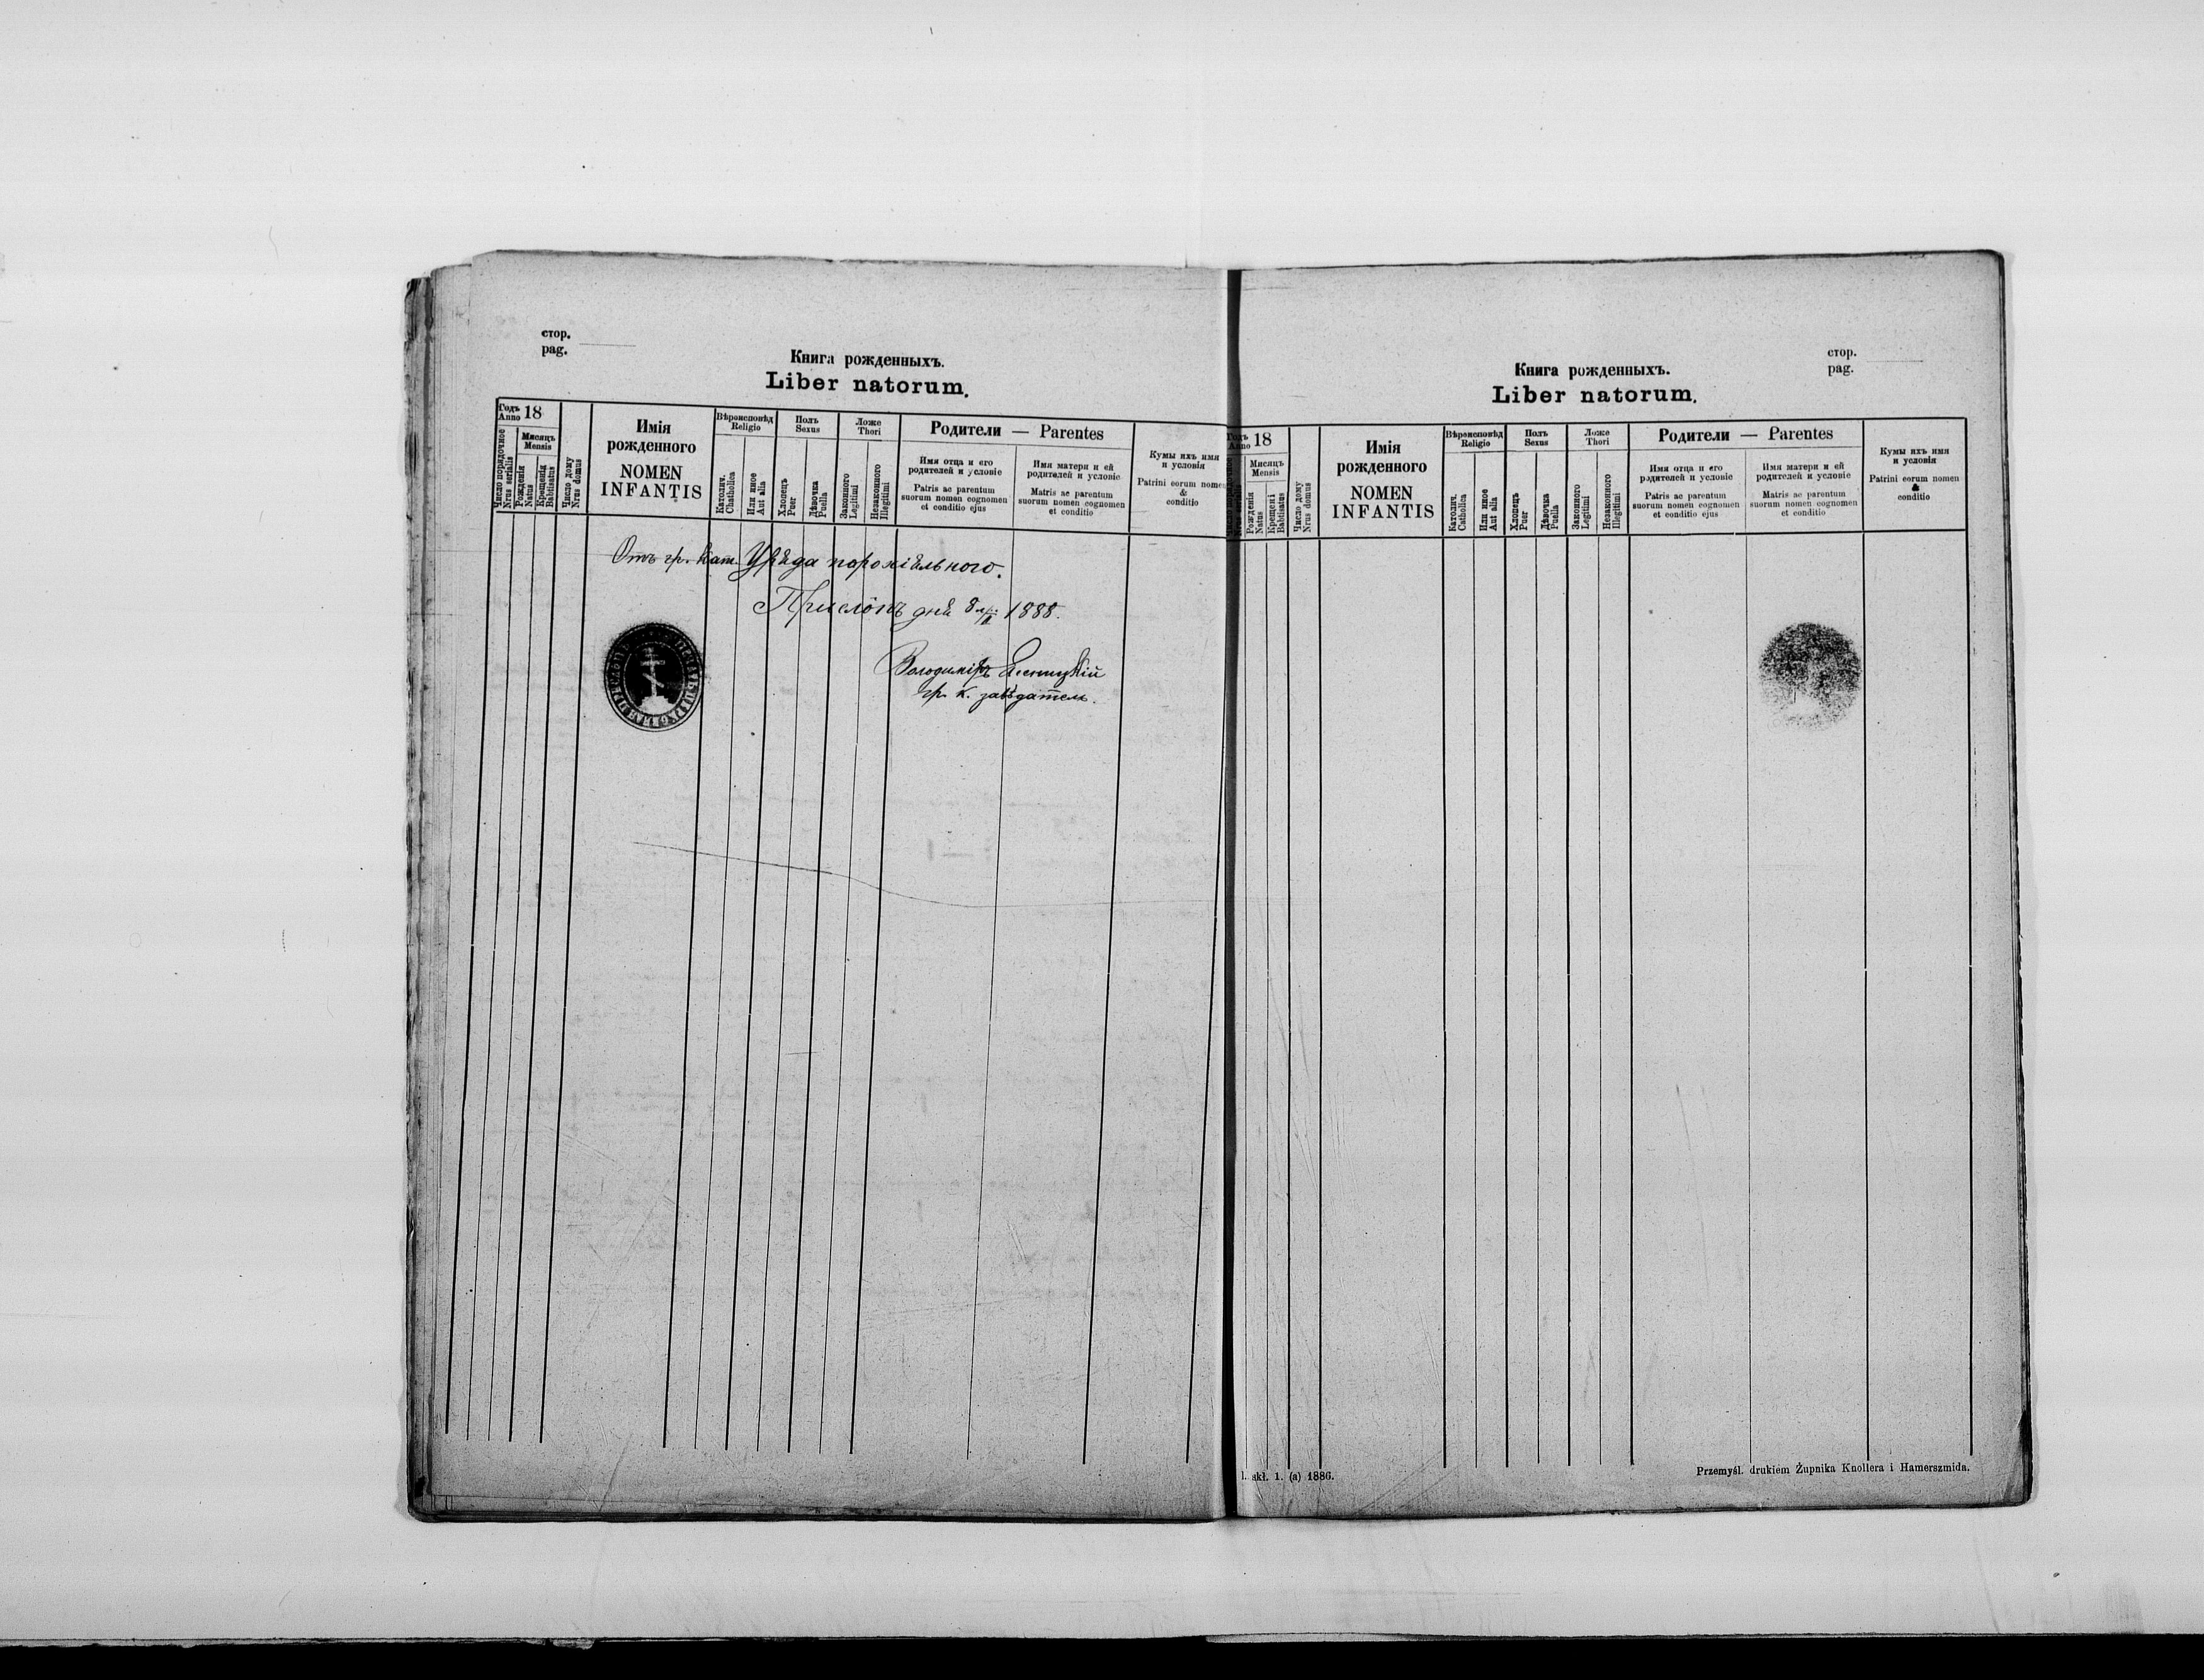 стор.
pag.
Книга рожденныхъ.
Liber natorum.
Годъ
Anno 18
Число порядочное
Nrus serialis
Мисяцъ
Mensis
Рожденія
Natus
Крещенія
Babtisatus
Число дому
Nrus domus
Имія
рожденного
NOMEN
INFANTIS
Вѣроисповѣд
Religio
Католич.
Chatholica
Или иное
Aut alia
Полъ
Sexus
Хлопецъ
Puer
Дѣвочка
Puella
Ложе
Thori
Законного
Legitimi
Незаконного
Illegitimi
Родители — Parentes
Имя отца и его
родителей и условіе
Patris ac parentum
suorum nomen cognomen
et conditio ejus
Имя матери и ей
родителей и условіе
Matris ac parentum
suorum nomen cognomen
et conditio
Кумы ихъ имя
и условія
Patrini eorum nomen
&
conditio
Отъ гр. кат. Уряда парохіяльного.
дня 8 1888.
Володиміръ
гр. к. завѣдатель.
стор.
pag.
Книга рожденныхъ.
Liber natorum.
Годъ
Anno 18
Мисяцъ
Mensis
Рожденія
Natus
Крещені
Babtisatus
Число дому
Nrus domus
Имія
рожденного
NOMEN
INFANTIS
Вѣроисповѣд
Religio
Католич.
Catholica
Или иное
Aut alia
Полъ
Sexus
Хлопецъ
Puer
Дѣвочка
Puella
Ложе
Thori
Законного
Legitimi
Незаконного
Illegitimi
Родители — Parentes
Имя отца и его
родителей и условіе
Patris ac parentum
suorum nomen cognomen
et conditio ejus
Имя матери и ей
родителей и условіе
Matris ac parentum
suorum nomen cognomen
et conditio
Кумы ихъ имя
и условія
Patrini eorum nomen
&
conditio
skł. 1. (a) 1886.
Przemyśl. drukiem Żupnika Knollera i Hamerszmida.